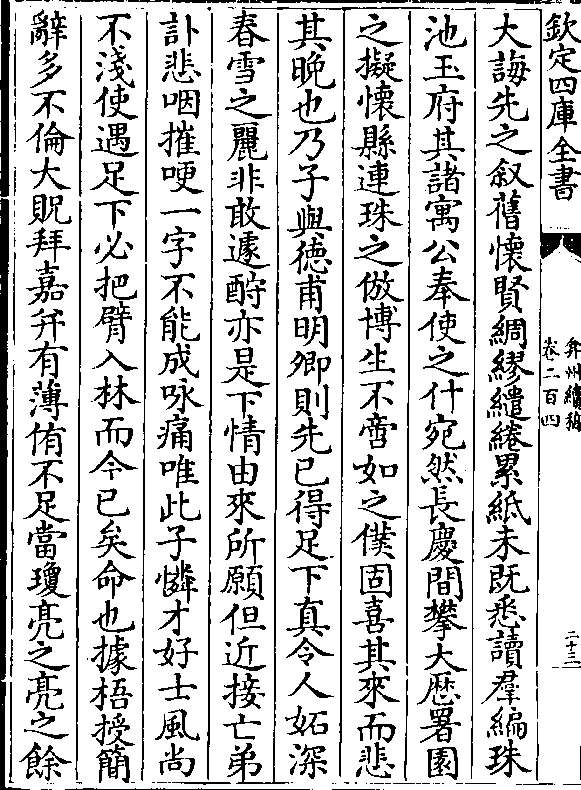 欽定四庫全書
弇州續稿
卷二百四
二十三
大誨先之叙舊懷賢綢繆繾綣累紙未既悉讀羣編珠
池玉府其諸寓公奉使之什宛然長慶間攀大厯署園
之擬懷縣連珠之倣博生不啻如之僕固喜其來而悲
其晚也乃子與徳甫明卿則先已得足下真令人妬深
春雪之麗非敢遽酧亦是下情由來所願但近接亡弟
訃悲咽摧哽一字不能成咏痛唯此子憐才好士風尚
不淺使遇足下必把臂入林而今已矣命也據梧授簡
辭多不倫大貺拜嘉并有薄侑不足當瓊亮之亮之餘